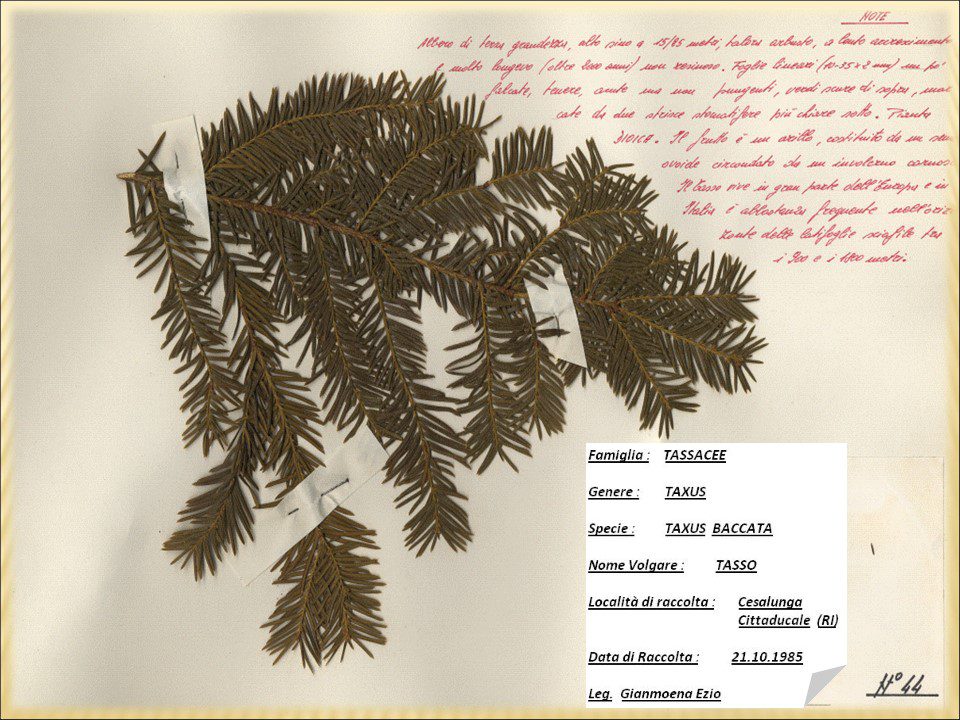 NOTE
Albero di terza grandezza, alto sino a 15/25 metri, talora arbusto, a lento accrescimento
e molto longevo (oltre 2000 anni) non resinoso. Foglie lineari (10-35x2 mm) un po'
falcate, tenere, acute ma non pungenti, verdi scure di sopra, mar
cate da due strisce stomatifere più chiare sotto. Pianta
DIOICA. Il frutto è un arillo, costituito da un sem
ovoide circondato da un involucro carnos
Il tasso vive in gran parte dell'Europa e in
Italia è abbastanza frequente nell'oriz
zonte delle latifoglie sciafile tra
i 300 e i 1800 metri.
Famiglia : TASSACEE
Genere : TAXUS
Specie : TAXUS BACCATA
Nome Volgare : TASSO
Località di raccolta : Cesalunga
Cittaducale (RI)
Data di Raccolta : 21.10.1985
Leg. Gianmoena Ezio
N° 44